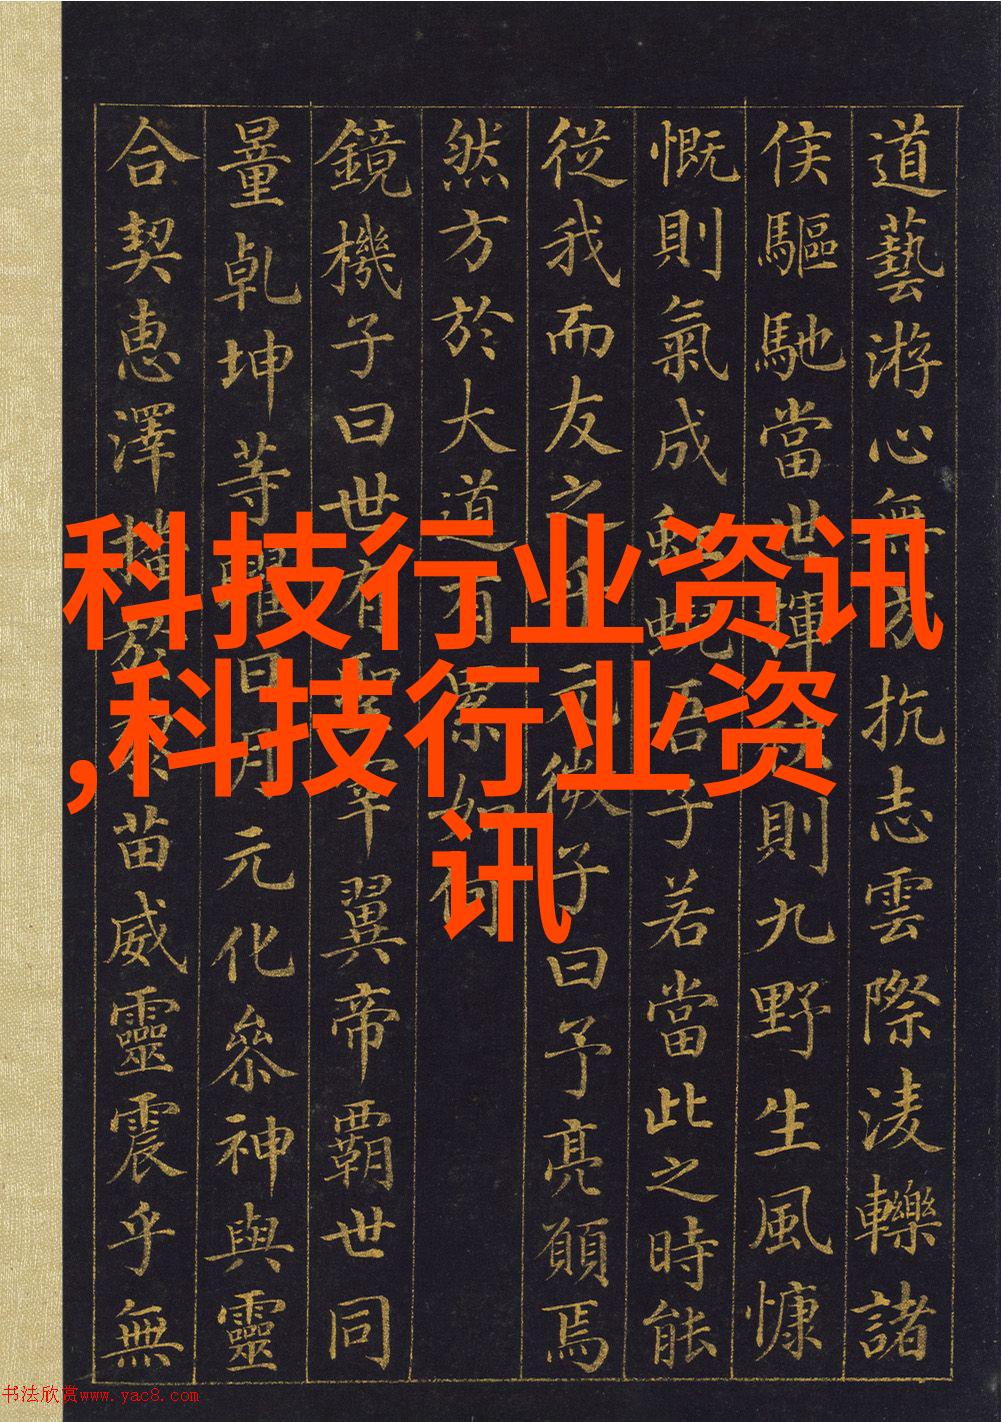 道藝游心無方抗志雲際淩轢諸
侯驅馳當世揮則九野生風慷
慨則氣成虹蜺吾子若當此之時能
從我而友之乎元微子曰予亮願焉
然方於大道有累如何
鏡機子曰世有聖宰翼帝霸世同
量乾坤等曜日月元化參神與靈
合契惠澤播於苗威靈震乎無
科技行业资讯
,科技行业资
讯
书法欣赏www.yac8.com